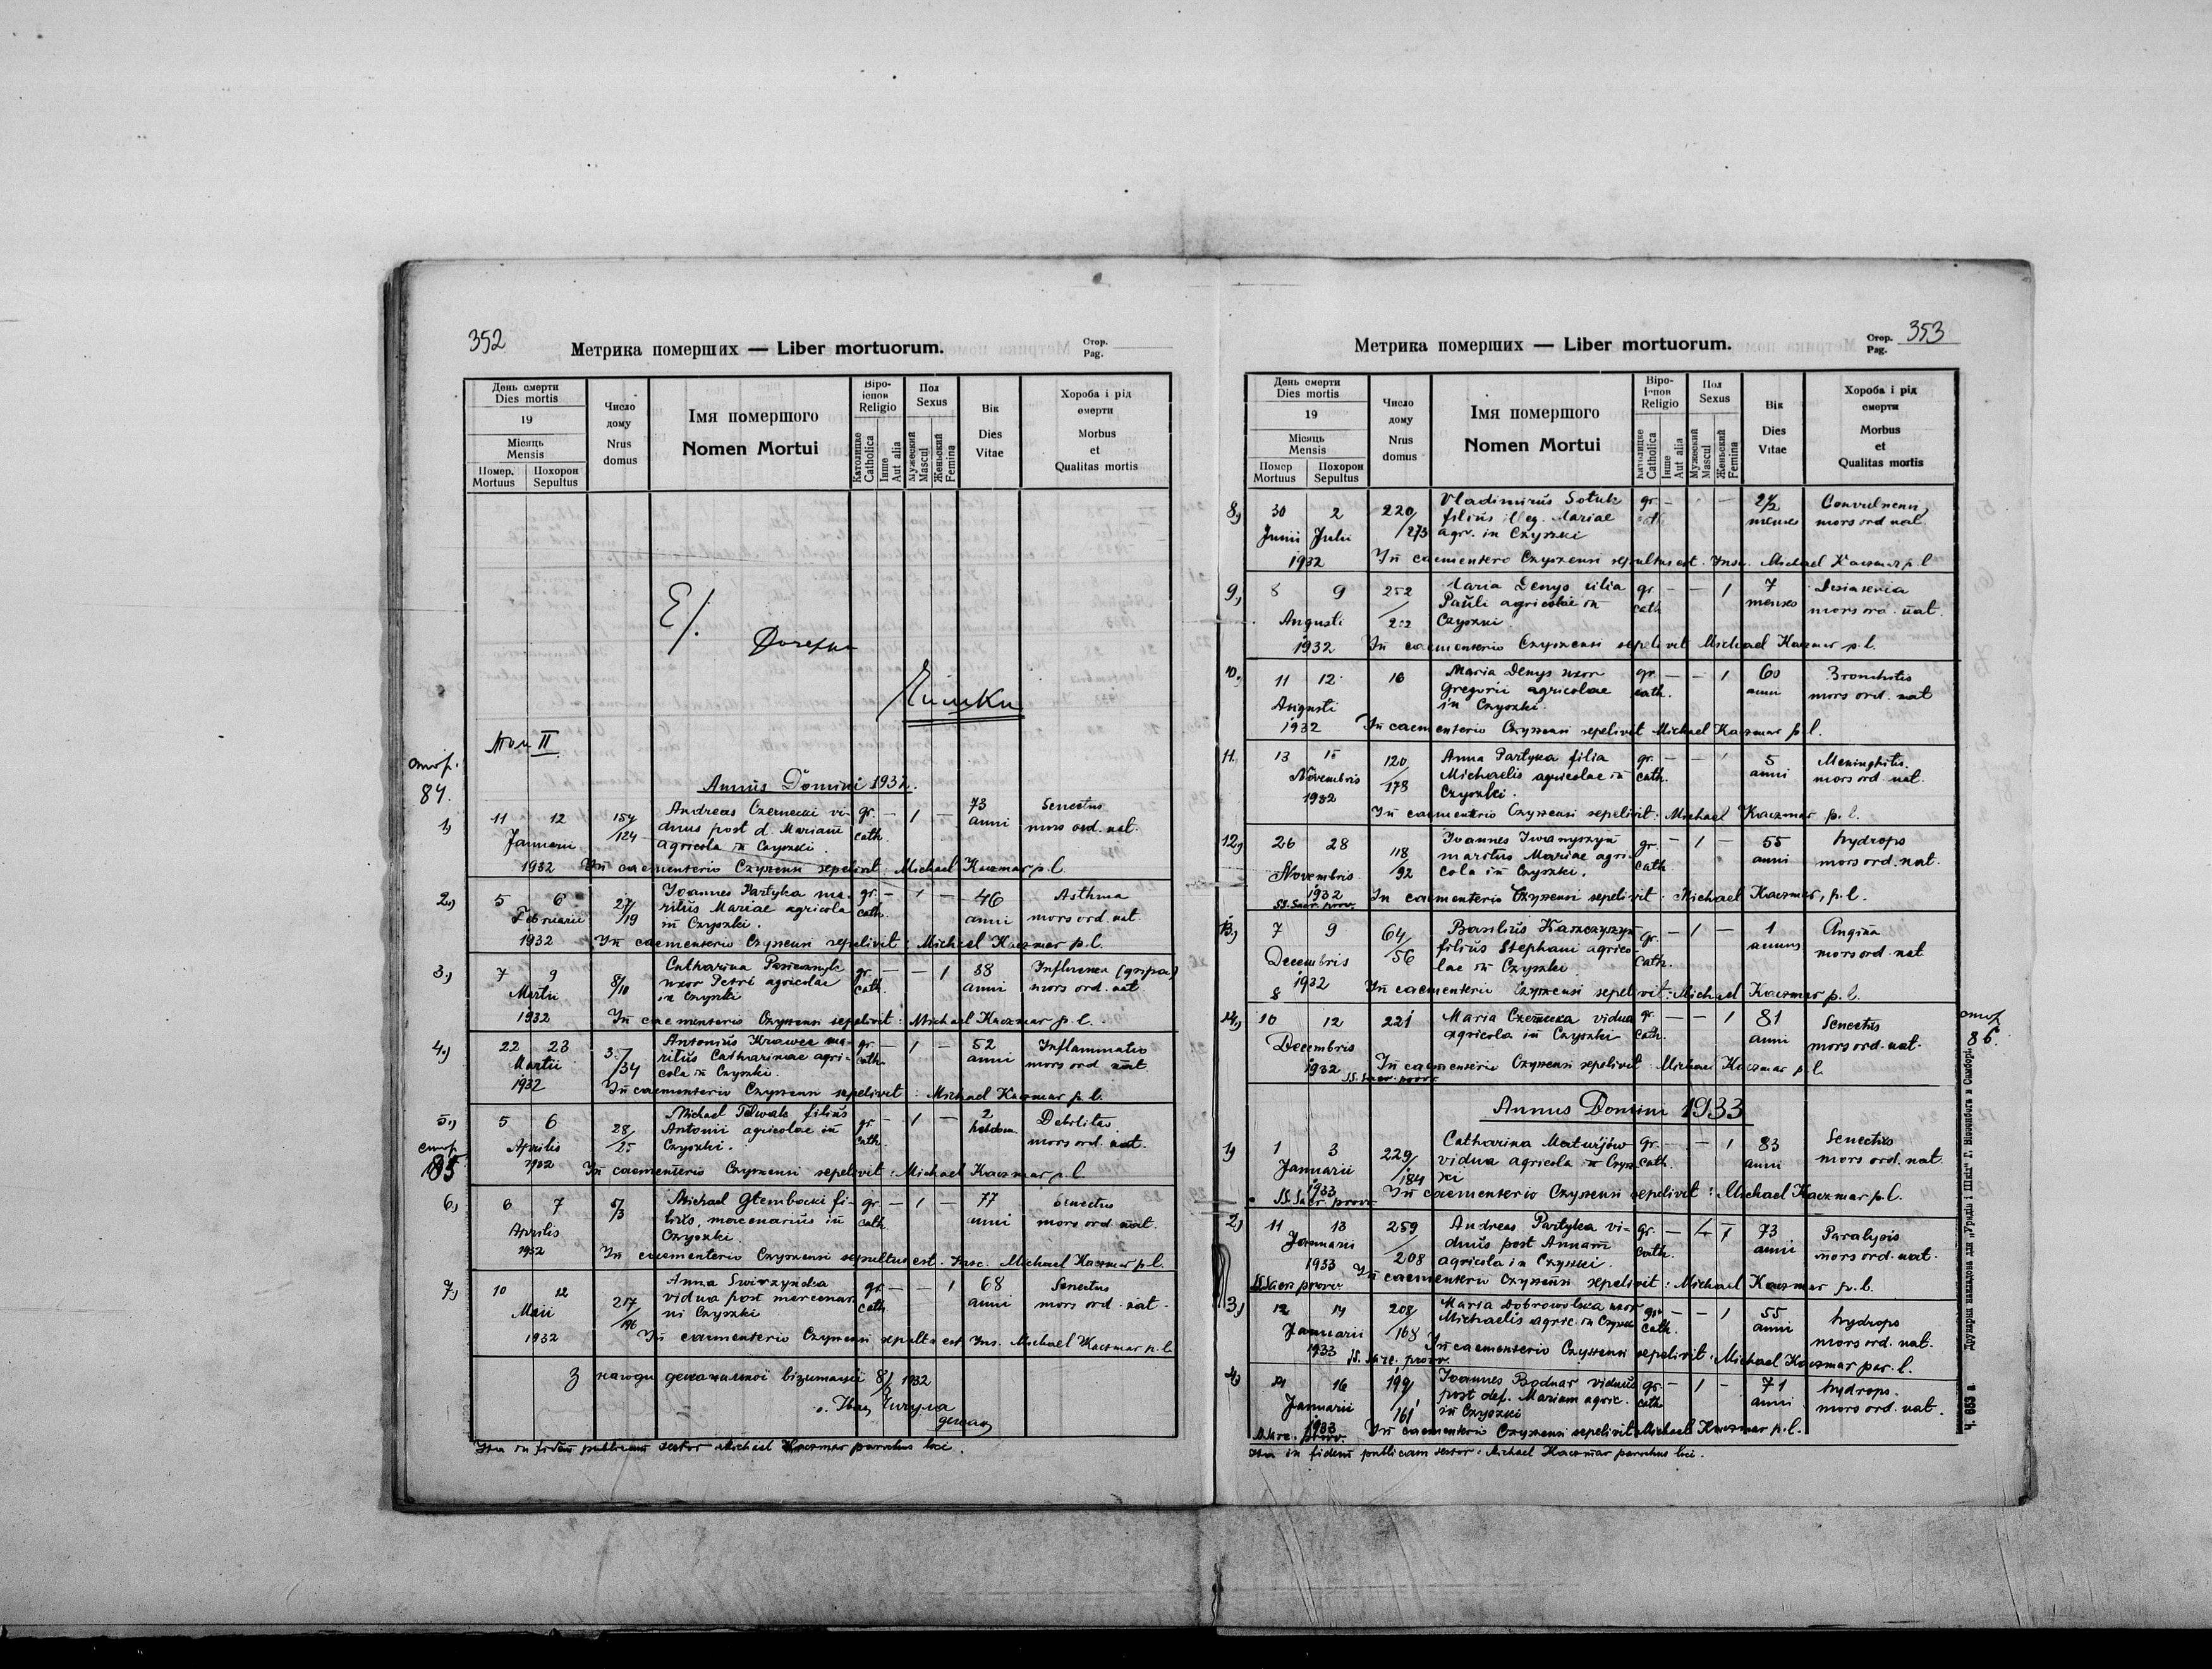 352
Метрика померших — Liber mortuorum.
Стор.
Pag.
День смерти
Dies mortis
19
Місяць
Mensis
Помер.
Mortuus
Похорон
Sepultus
Число
дому
Nrus
domus
Імя помершого
Nomen Mortui
Віро-
ісповід
Religio
Католицке
Catholica
Інше
Aut alia
Пол
Sexus
Мужеский
Mascul
Женьский
Femina
Вік
Dies
Vitae
Хороба і рід
смерти
Morbus
et
Qualitas mortis
Чишки
Том II
84.
Annus Domini 1932.
1) 11 12 154/124 Andreas Czernecki vi- gr. — 1 — 73 Senectus
Januarii duus post d. Mariam cath. anni mors ord. nat.
agricola in Czyszki.
1932 In caementerio Czyszensi sepelivit: Michael Kaczmar p. l.
2) 5 6 27/19 Joannes Partyka ma- gr. — 1 — 46 Asthma
Februarii ritus Mariae agricola cath. anni mors ord. nat.
in Czyszki.
1932 In caementerio Czyszensi sepelivit: Michael Kaczmar p. l.
3) 7 9 8/10 Catharina gr. — — 1 38 Influenca (gripa)
Martii uxor Petri agricolae cath. anni mors ord. nat
in Czyszki
1932 In caementerio Czyszensi sepelivit: Michael Kaczmar p. l.
4) 22 23 /34 Antonius Krawec ma- gr. — 1 — 52 Inflammatio
Martii ritus Catharinae agri- cath. anni mors ord nat.
cola in Czyszki.
1932 In caementerio Czyszensi sepelivit: Michael Kaczmar p. l.
5) 5 6 28/25 Michael filius gr. — 1 — 2 Debilitas.
Aprilis Antonii agricolae in cath. hebdom. mors ord. nat.
Czyszki.
85
1932 In caementerio Czyszensi sepelivit: Michael Kaczmar p. l.
6) 6 7 5/3 Michael Głembocki fi- gr. — 1 — 77 Senectus
Aprilis lius, mercenarius in cath. anni mors ord. nat.
Czyszki.
1932 In caementerio Czyszensi sepultus est. Insc. Michael Kaczmar p. l.
7) 10 12 217/196 Anna Swirzyńska gr. — — 1 68 Senectus
Maii vidua post mercenar. cath anni mors ord. nat.
in Czyszki
1932 In caementerio Czyszensi sepulta est Ins. Michael Kaczmar p. l.
З нагоди деканальної візитації 8/ 1932
о. Іван
декан
Ita in fidem publicam testor Michael Kaczmar parochus loci.
353
Метрика померших — Liber mortuorum.
Стор.
Pag.
День смерти
Dies mortis
19
Місяць
Mensis
Помер
Mortuus
Похорон
Sepultus
Число
дому
Nrus
domus
Імя помершого
Nomen Mortui
Religio
Католицке
Catholica
Інше
Aut alia
Пол
Sexus
Мужеский
Mascul
Женьский
Femina
Вік
Dies
Vitae
Хороба і рід
смерти
Morbus
et
Qualitas mortis
8) 30 2 220/273 Vladimirus Sotuk gr. — 2½ Convulsenis,
Junii Julii filius illeg. Mariae cath menses mors ord nat.
agr. in Czyszki
1932 In caementerio Czyszensi sepultus est. Insc. Michael Kaczmar p. l
9) 8 9 252/ Maria Denys filia gr. — — 1 7
Augusti Pauli agricolae in cath menses mors ord. nat.
Czyszki
1932 In caementerio Czyszensi sepelivit Michael Kaczmar p. l.
10) 11 12 16 Maria Denys uxor gr. — — 1 60 Bronchitis
Augusti Gregorii agricolae cath. anni mors ord. nat
in Czyszki.
1932 In caementerio Czyszensi sepelivit Michael Kaczmar p. l.
11. 13 15 120/178 Anna Partyka filia gr. — — 1 5 Meninghitis.
Novembris Michaelis agricolae in cath. anni mors ord. nat.
1932 Czyszki.
In caementerio Czyszensi sepelivit: Michael Kaczmar p. l.
12) 26 28 118/92 Joannes Iwanyszyn gr. — 1 — 55 hydrops
Novembris maritus Mariae agri- cath. anni mors ord. nat.
cola in Czyszki.
1932 In caementerio Czyszensi sepelivit: Michael Kaczmar, p. l.
SS. Sacr. prov.
13) 7 9 64/56 Basilius gr. — 1 — 1 Angina
Decembris filius Stephani agrico- cath. annus mors ord. nat
lae in Czyszki
1932 In caementerio Czyszensi sepelivit: Michael Kaczmar p. l.
14) 10 12 221 Maria vidua gr. — — 1 81 Senectus
Decembris agricola in Czyszki cath. anni mors ord. nat.
86.
1932 In caementerio Czyszensi sepelivit Michael Kaczmar p. l.
SS. Sacr. prov.
Annus Domini 1933
1) 1 3 229/184 Catharina Matwijów gr. — — 1 83 Senectus
Januarii vidua agricola in Czysz- cath. anni mors ord. nat.
ki
1933 In caementerio Czyszensi sepelivit: Michael Kaczmar p. l.
SS. Sacr. prov.
2) 11 13 259/208 Andreas Partyka vi- gr. — 73 Paralysis
Januarii duus post Annam cath. anni mors ord. nat.
agricola in Czyszki.
1933 In caementerio Czyszensi sepelivit: Michael Kaczmar p. l.
SS. Sacr. prov.
3) 12 14 208/168 Maria Dobrowolska uxor gr. — — 1 55 hydrops
Januarii Michaelis agric. in Czyszki cath. anni mors ord. nat.
1933 In caementerio Czyszensi sepelivit: Michael Kaczmar par. l.
SS. Sacr. prov.
4) 14 16 199/161 Joannes Bodnar viduus gr. — 1 — 71 hydrops.
Januarii post def. Mariam agric. cath anni mors ord. nat.
in Czyszki
1933 In caementerio Czyszensi sepelivit Michael Kaczmar p. l.
Ita in fidem publicam testor: Michael Kaczmar parochus loci.
Ч. 653 а